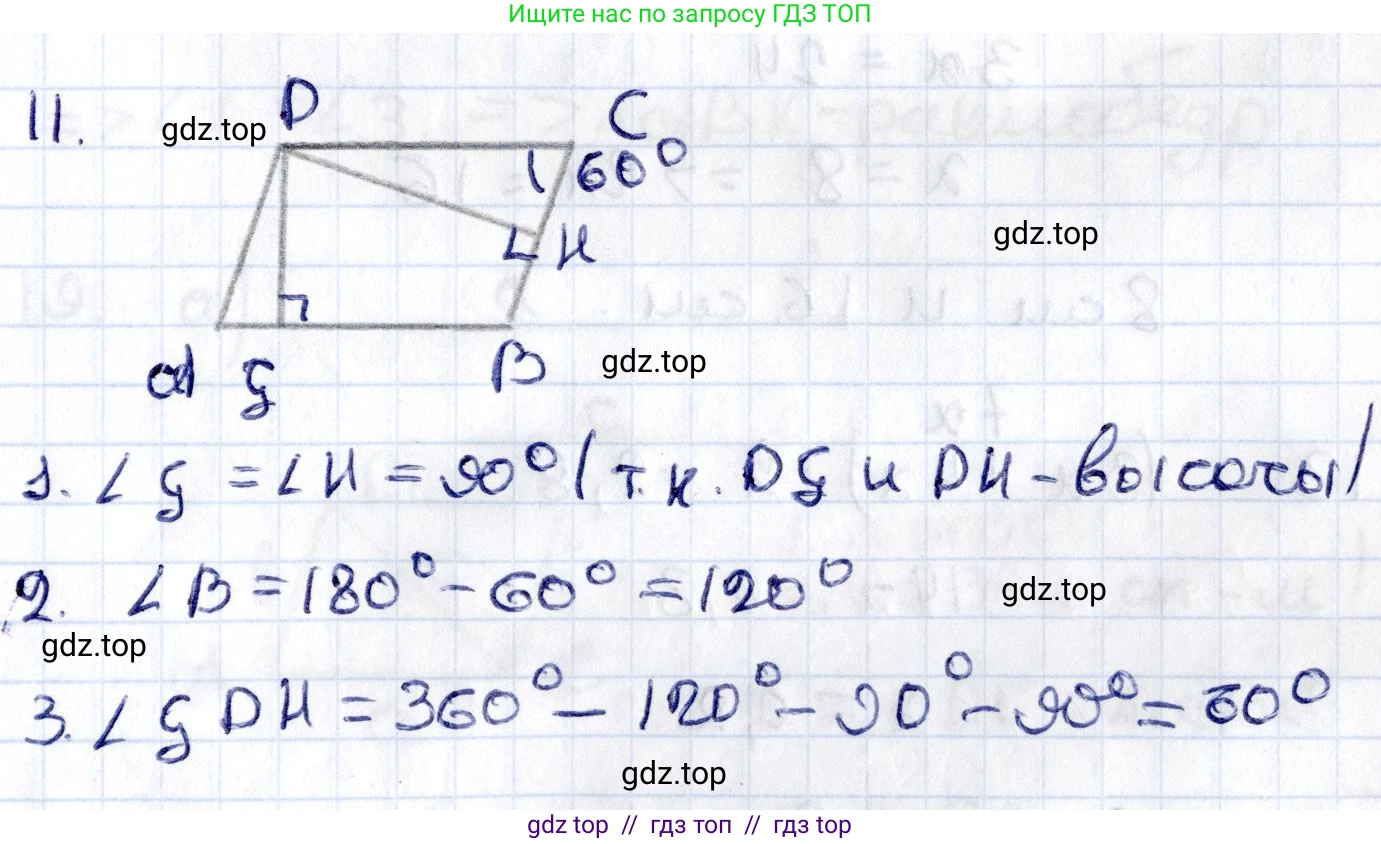 Ищите нас по запросу ГДЗ ТОП
11.
D
gdz.top
C
60°
gdz.top
H
A G
B
gdz.top
1. ∠ G = ∠ H = 90° (т.к. DG и DH - высоты)
2. ∠ B = 180° - 60° = 120°
gdz.top
gdz.top
3. ∠ G D H = 360° - 120° - 90° - 90° = 60°
gdz.top
gdz top // гдз топ // гдз top